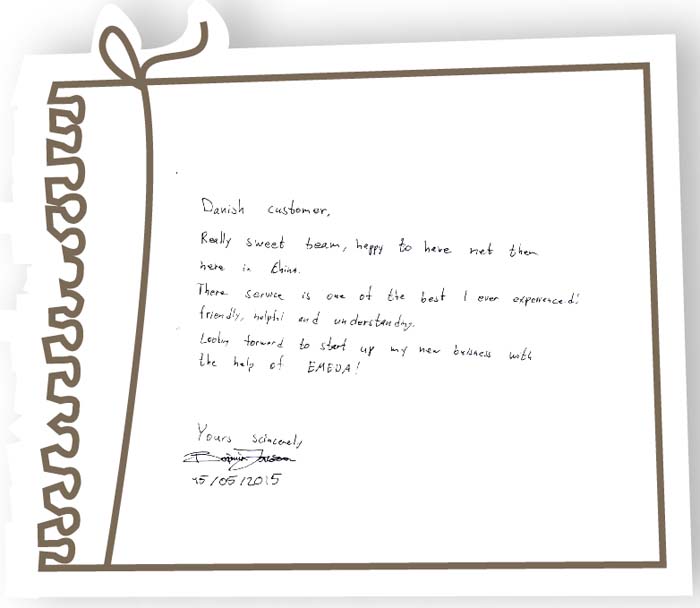 Danish customer,
Really sweet team, happy to have met them
here in China.
There service is one of the best I ever experienced:
friendly, helpful and understanding.
Lookin forward to start up my new buisness with
the help of EMEDA!
Yours scincerely
15/05/2015